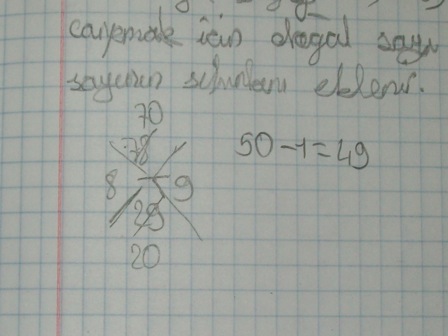 çarpmak için doğal sayı
sayının sıfırları eklenir.
70
78
8 9
29
20
50-1=49